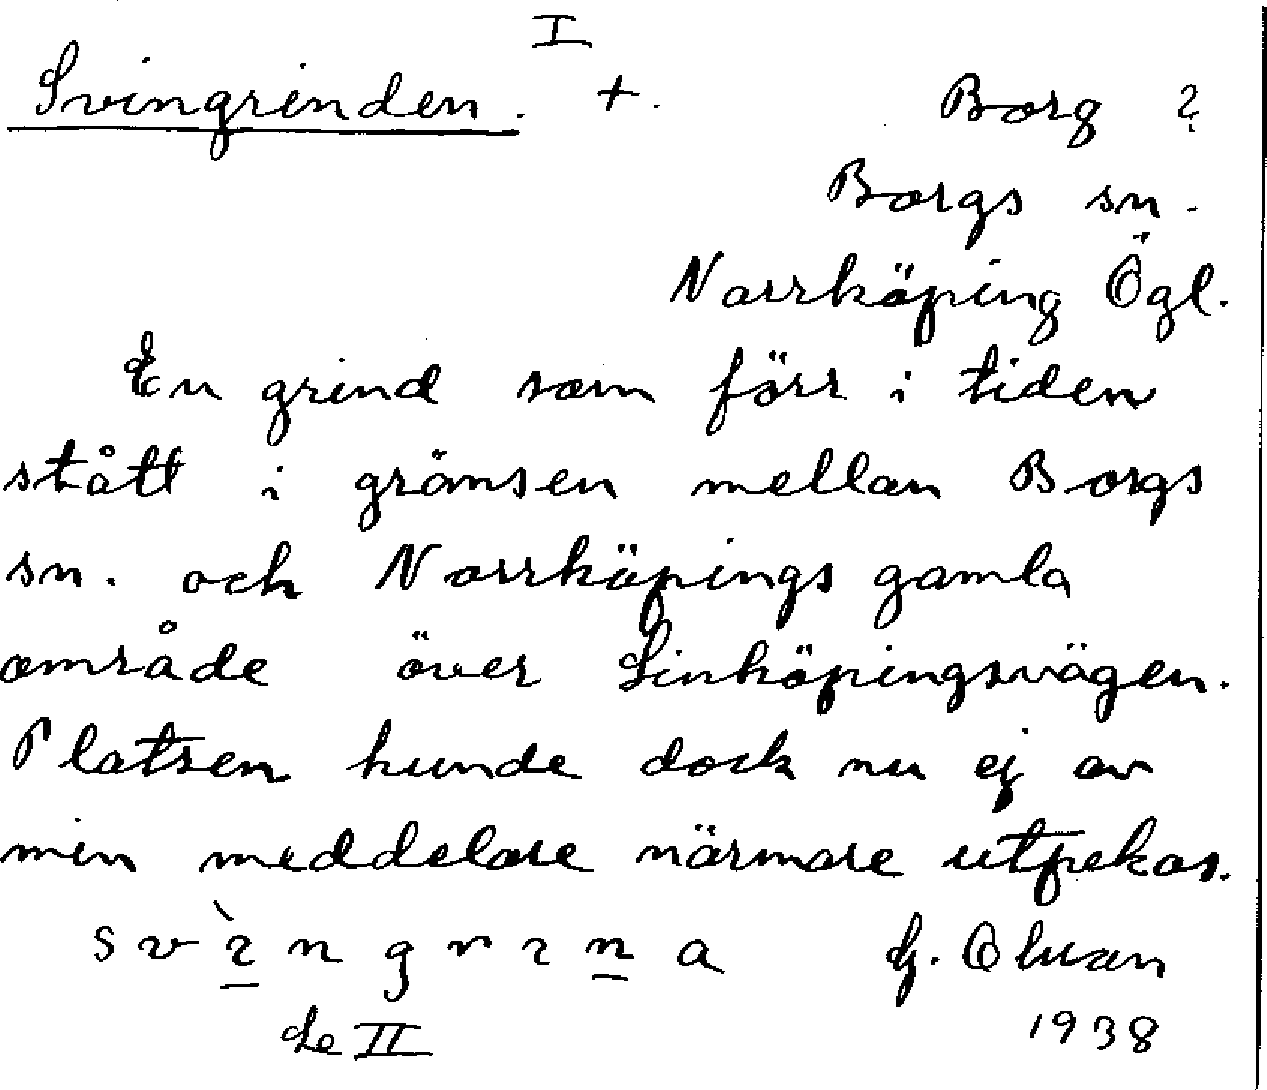 I
Svingrinden. +.
Borg ?
Borgs sn.
Norrköping Ögl.
En grind som förr i tiden
stått i gränsen mellan Borgs
sn. och Norrköpings gamla
område över Linköpingsvägen.
Platsen kunde dock nu ej av
min meddelare närmare utpekas.
G.
1938